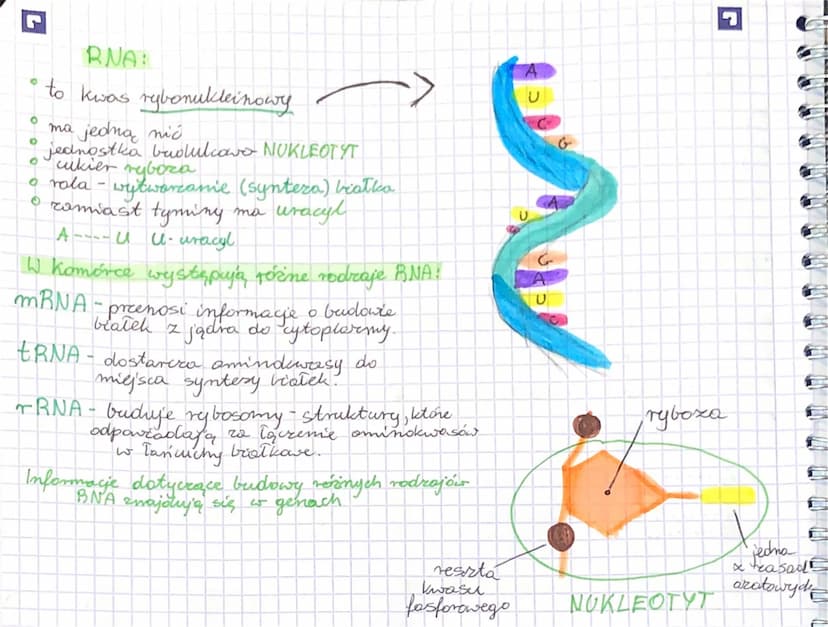 RNA:
to kwas rybonukleinowy
ma jedną nić
jednostka budulcowa NUKLEOTYT
cukier ryboza
rola - wytwarzanie (synteza) białka
zamiast tyminy ma uracyl
A----U U-uracyl
W komórce występują różne rodzaje RNA:
mRNA - przenosi informacje o budowie
białek z jądra do cytoplazmy.
tRNA - dostarcza aminokwasy do
miejsca syntezy białek.
rRNA - buduje rybosomy - struktury, które
odpowiadają za łączenie aminokwasów
w łańcuchy białkowe.
Informacje dotyczące budowy różnych rodzajów
RNA znajdują się w genach
A
U
C
G
A
U
C
G
A
U
C
ryboza
reszta
kwasu
fosforowego
jedna
z zasad
azotowych
NUKLEOTYT